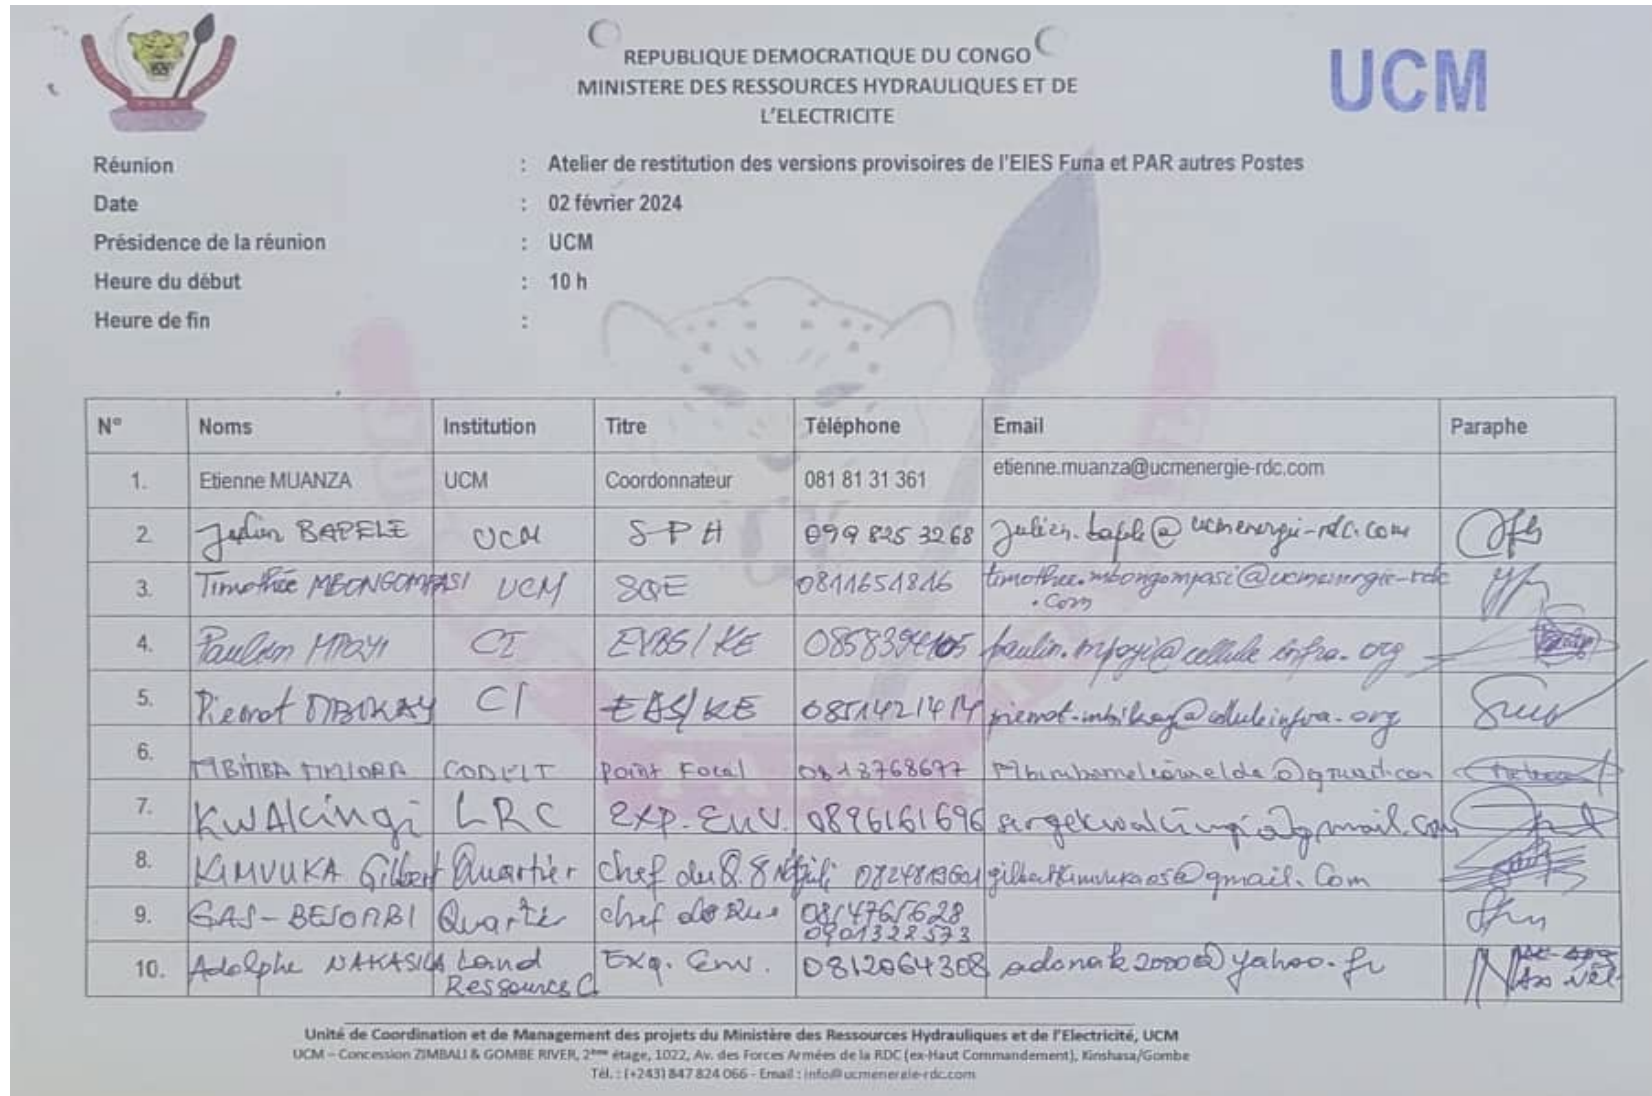 REPUBLIQUE DEMOCRATIQUE DU CONGO
MINISTERE DES RESSOURCES HYDRAULIQUES ET DE
L'ELECTRICITE
UCM
Réunion : Atelier de restitution des versions provisoires de l'EIES Funa et PAR autres Postes
Date : 02 février 2024
Présidence de la réunion : UCM
Heure du début : 10 h
Heure de fin :
N° Noms Institution Titre Téléphone Email Paraphe
1. Etienne MUANZA UCM Coordonnateur 081 81 31 361 etienne.muanza@ucmenergie-rdc.com
2. Julien BAPELE UCM SPH 099 825 3268
3. Timothée MBONGOMPASI UCM SQE 0811651816 timothee.mbongompasi@ucmenergie-rdc
.com
4. Paulin MPOYI CI paulin.mpoyi@celluleinfra.org
5. Pierrot MBIKAY CI EBS/KE 0851421414
6. Point Focal 0813768677
7. KWAKingi LRC Exp. Env. 0896161696 sergekwakingi@gmail.com
8. KIMVUKA Gilbert Quartier chef du Q.
9. Quartier chef de Rue 0814765628
0901328573
10. Adolphe NAKASILA Land Exp. Env. 0812064308 adonak2000@yahoo.fr
Ressources C.
Unité de Coordination et de Management des projets du Ministère des Ressources Hydrauliques et de l'Electricité, UCM
UCM – Concession ZIMBALI & GOMBE RIVER, 2ème étage, 1022, Av. des Forces Armées de la RDC (ex-Haut Commandement), Kinshasa/Gombe
Tél. : (+243) 847 824 066 - Email : info@ucmenergie-rdc.com